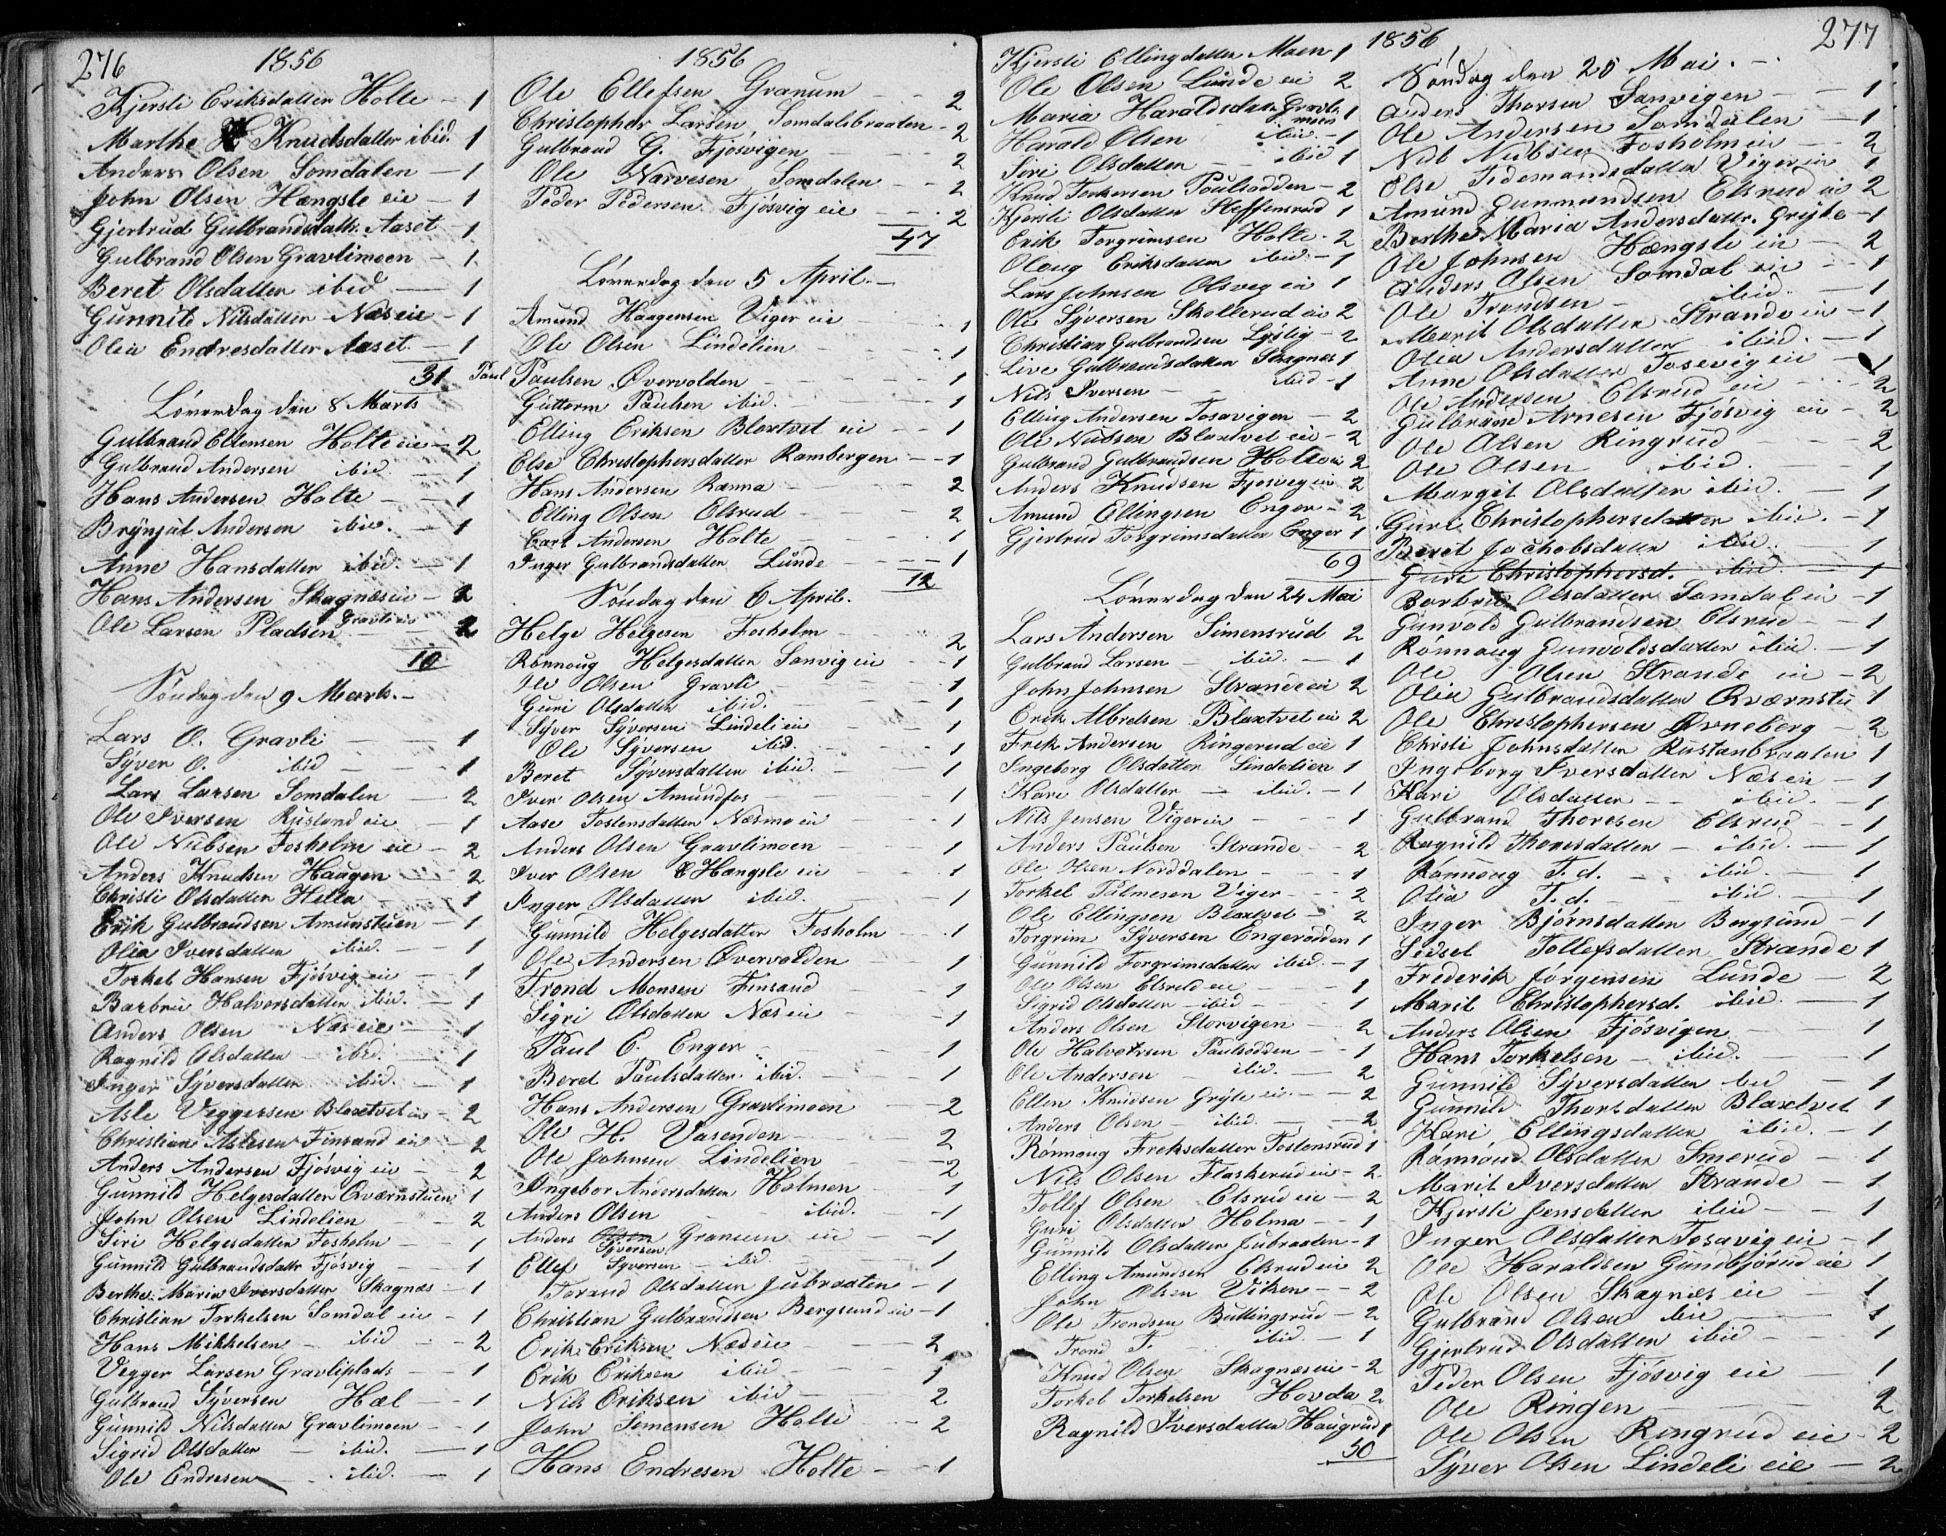 276
1856
Kjersti Eriksdatter Holte — 1
Marthe K. Knudsdatter ibid. 1
Anders Olsen Somdalen — 1
John Olsen Hængsle eie — 1
Gjertrud Gulbrandsdatt. Aaset 1
Gulbrand Olsen Gravlimoen — 1
Beret Olsdatter ibid — 1
Gunnild Nilsdatter Næs eie — 1
Olea Endresdatter Aaset — 1
31
Løverdag den 8 Marts
Gulbrand Ellensen Holte eie — 2
Gulbrand Andersen ibid. — 1
Hans Andersen Holte — 1
Brynjul Andersen ibid. — 1
Anne Hansdatter ibid. — 1
Hans Andersen Skagnæs eie — 2
Ole Larsen Pladsen Gravli eie 2
10
Søndag den 9 Marts. —
Lars O. Gravli — 1
Syver O. ibid — 1
Lars Larsen Somdalen — 2
Ole Iversen Rustand eie — 1
Ole Nubsen Fosholm eie — 2
Anders Knudsen Haugen — 2
Christi Olsdatter Hella — 1
Erik Gulbrandsen Amunstuen — 1
Olea Iversdatter ibid. — 1
Torkel Hansen Fjøsvig eie — 1
Barbrei Halvorsdatter ibid. — 1
Anders Olsen Næs eie — 1
Ragnild Olsdatter — ibid. — 1
Inger Syversdatter ibid. — 1
Asle Veggersen Blaxtvet eie — 2
Christian Aslesen Finsand eie — 2
Anders Andersen Fjøsvig eie — 2
Gunnild Helgesdatter Qværnstuen 1
John Olsen Lindelien — 2
Siri Helgesdatter Fosholm — 1
Gunnild Gulbrandsdatt. Fjøsvig — 1
Berthe Maria Iversdatter Skagnæs — 1
Christian Torkelsen Somdal eie — 1
Hans Mikkelsen — ibid — 2
Vegger Larsen Gravliplads — 1
Gulbrand Syversen Hæl — 1
Gunnild Nilsdatter Gravlimoen — 1
Sigrid Olsdatter — ibid. — 1
Ole Endresen — ibid. — 1
1856
Ole Ellefsen Granum — 2
Christopher Larsen Somdalsbraaten — 2
Gulbrand G. Fjøsvigen — 2
Ole Narvesen Somdalen — 2
Peder Pedersen Fjøsvig eie — 2
47
Løverdag den 5 April. —
Amund Haagensen Viger eie — 1
Ole Olsen Lindelien — 1
Paul Paulsen Øvervolden — 1
Guttorm Paulsen ibid. — 1
Elling Eriksen Blaxtvet eie — 1
Else Christophersdatter Rambergen — 1
Hans Andersen Ramna — 2
Elling Olsen Elsrud — 2
Carl Andersen Holte — 1
Inger Gulbrandsdatter Lunde — 1
12
Søndag den 6 April.
Helge Helgesen Fosholm — 2
Rønnoug Helgesdatter Sanvig eie — 1
Ole Olsen Gravli — 1
Guri Olsdatter ibid. — 1
Syver Syversen Lindeli eie — 1
Ole Syversen ibid. — 1
Beret Syversdatter ibid. — 1
Iver Olsen Amundfos — 1
Aase Tostensdatter Næsmo eie — 1
Anders Olsen Gravlimoen — 1
Iver Olsen Hængsle eie — 1
Inger Olsdatter ibid. — 1
Gunnild Helgesdatter Fosholm — 1
Ole Andersen Øvervolden — 1
Trond Monsen Finsand — 1
Sigri Olsdatter Næs eie — 1
Paul E. Enger — 1
Beret Paulsdatter ibid. — 1
Hans Andersen Gravlimoen — 2
Ole H. Vasenden — 2
Ole Johnsen Lindelien — 2
Ingebor Andersdatter Holmen — 1
Anders Olsen — ibid. — 1
Anders Olsen Syversen Granum eie — 1
Ellef Syversen — ibid. — 1
Torand Olsdatter Jubraaten — 1
Christian Gulbrandsen Bergsund eie — 1
Erik Eriksen Næs eie — 2
Erik Eriksen ibid — 1
Nils Eriksen ibid — 2
John Simensen Holte — 2
Hans Endresen Holte — 1
Kjersti Ellingdatter Moen 1
Ole Olsen Lunde eie 2
Maria Haraldsdatter Gravlimoen 1
Harald Olsen ibid. — 1
Siri Olsdatter — ibid 1
Knud Torkersen Poulsodden — 2
Kjersti Olsdatter Steffensrud 1
Erik Torgrimsen Holte — 2
Oloug Eriksdatter ibid. — 1
Lars Johnsen Olsveg eie 1
Ole Syversen Skollerud eie 2
Christian Gulbrandsen Lyslig — 2
Live Gulbrandsdatter Skagnæs 1
Nils Iversen — ibid — 1
Elling Andersen Tosavigen — 2
Ole Nubsen Blaxtvet eie — 2
Gulbrand Gulbrandsen Holte eie 2
Anders Knudsen Fjøsvig eie 2
Amund Ellingsen Enger — 2
Gjertrud Torgrimsdatter Enger 1
69
Løverdag den 24 Mai
Lars Andersen Simensrud 2
Gulbrand Larsen — ibid. — 1
John Johnsen Strande eie 2
Erik Albretsen Blaxtvet eie 2
Frek Andersen Ringerud eie 1
Ingeborg Olsdatter Lindelien 1
Kari Olsdatter — ibid. — 1
Nils Jensen Viger eie — 1
Anders Paulsen Strande — 2
Ole Olsen Norddalen — 1
Torkel Palmesen Viger — 2
Ole Ellingsen Blaxtvet — 2
Torgrim Syversen Engerodden 1
Gunnild Torgrimsdatter ibid. — 1
Ole Olsen Elsrud eie — 1
Sigrid Olsdatter — ibid — 1
Anders Olsen Storvigen — 2
Ole Halvorsen Paulsodden — 1
Ole Andersen — ibid. — 2
Ellen Knudsen Gryte eie — 2
Anders Olsen — ibid. — 2
Rønnoug Freksdatter Tostensrud 1
Nils Olsen Flaskerud eie — 2
Tollef Olsen Elsrud eie — 2
Guri Olsdatter Holma — 1
Gunnild Olsdatter Jubraaten — 1
Elling Amundsen Elsrud eie 2
John Olsen Viken — 2
Ole Trondsen Buttingsrud 2
Trond T. — ibid. — 1
Knud Olsen Skagnæs eie — 2
Torkel Torkelsen Hovda 2
Ragnild Iversdatter Haugrud 1
50
1856
277
Søndag den 25 Mai. —
Anders Thorsen Sanvigen — 1
Ole Andersen Somdalen — 1
Nub Nubsen Fosholm eie — 2
Else Tidemandsdatter Viger eie 1
Amund Gunnundsen Elsrud eie 2
Berthe Maria Andersdatter Gryte — 1
Ole Johnsen Hængsle eie — 2
Anders Olsen Somdal eie — 1
Ole Trondsen — ibid. — 1
Marit Olsdatter Strande eie — 1
Olea Andersdatter ibid. — 1
Anne Olsdatter Tosevig eie — 1
Ole Andersen Elsrud eie — 2
Gulbrand Arnesen Fjøsvig eie — 2
Ole Olsen Ringrud — 2
Ole Olsen ibid. — 1
Margit Olsdatter ibid. — 1
Guri Christophersdatter ibid. — 1
Beret Jachobsdatter ibid. — 1
Guri Christophersd. ibid — 1
Barbrei Olsdatter Somdal eie — 1
Gunvold Gulbrandsen Elsrud — 1
Rønnoug Gunvoldsdatter ibid. — 1
Ole Olsen Strande eie — 2
Olea Gulbrandsdatter Qværnstu 1
Ole Christophersen Ørneberg — 2
Christi Johnsdatter Rustanbraaten 1
Ingeborg Iversdatter Næs eie — 1
Kari Olsdatter — ibid. — 1
Gulbrand Thoresen Elsrud — 1
Ragnild Thoresdatter — ibid. — 1
Rønnoug T. d. — ibid. — 1
Olea T. d. — ibid — 1
Inger Bjørnsdatter Bergsund 1
Sidsel Tollefsdatter Strande 1
Frederik Jørgensen Lunde — 2
Marit Christophersd. ibid. — 1
Anders Olsen Fjøsvigen — 1
Hans Torkelsen — ibid. — 1
Gunnild Syversdatter ibid — 1
Gunnild Thorsdatter Blaxtvet 1
Kari Ellingsdatter ibid. — 1
Rønnoug Olsdatter Smerud — 1
Marit Iversdatter Strande — 1
Kjersti Jensdatter ibid — 1
Inger Olsdatter Tosavig eie — 1
Ole Haraldsen Gundbjørud eie 1
Ole Olsen Skagnæs eie — 1
Gulbrand Olsen ibid — 1
Gjertrud Olsdatter ibid — 1
Peder Olsen Fjøsvig eie — 1
Ole Ringen — 2
Ole Olsen Ringrud eie — 2
Syver Olsen Lindeli eie — 2